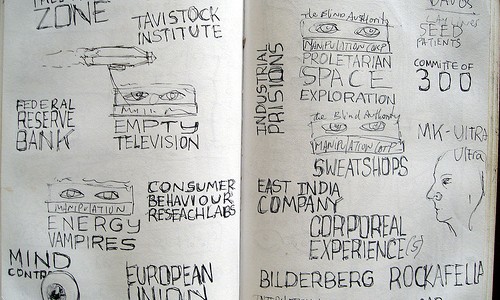 ZONE
TAVISTOCK
INSTITUTE
FEDERAL
RESERVE
BANK
EMPTY
TELEVISION
MANIPULATION
ENERGY
VAMPIRES
CONSUMER
BEHAVIOUR
RESEACH LABS
MIND
CONTRO
EUROPEAN
UNION
INDUSTRIAL
PRISIONS
The Blind Authority
MANIPULATION CORP
PROLETARIAN
SPACE
EXPLORATION
The Blind Authority
MANIPULATION CORP
SWEATSHOPS
EAST INDIA
COMPANY
CORPOREAL
EXPERIENCE(S)
BILDERBERG
ROCKAFELLA
DAVOS
SEED
PATIENTS
COMMITTE OF
300
MK-Ultra
Ultra